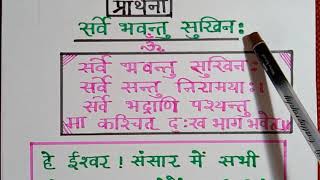 प्रार्थना
सर्वे भवन्तु सुखिनः
ॐ
सर्वे भवन्तु सुखिनः
सर्वे सन्तु निरामयाः।
सर्वे भद्राणि पश्यन्तु
मा कश्चित दुःख भाग भवेत॥
हे ईश्वर! संसार में सभी